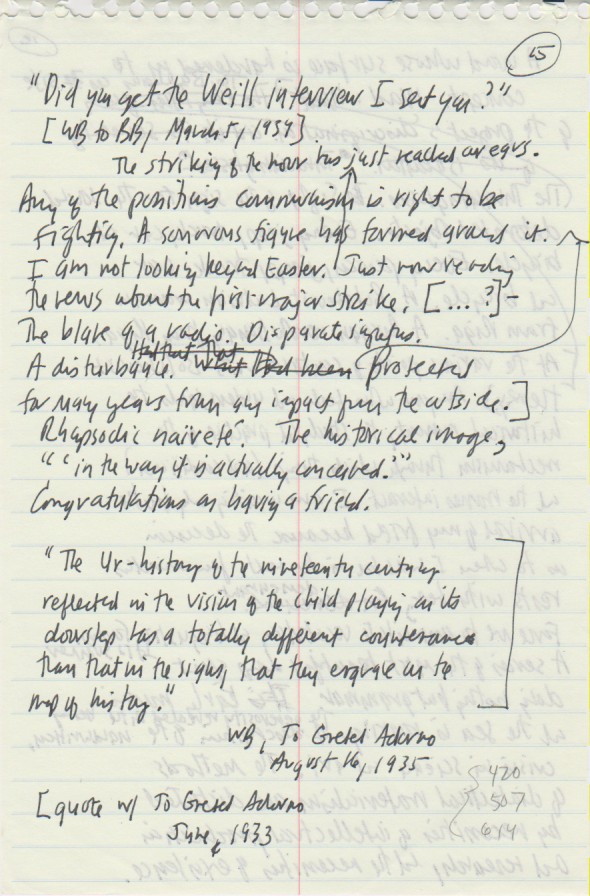 65
"Did you get the Weill interview I sent you?"
[WB to BB, March 5, 1934]
The striking of the hour has just reached our ears.
Any of the positions communism is right to be
fighting. A sonorous figure has formed around it.
I am not looking beyond Easter. Just now reading
the news about the first major strike. [....?]-
The blare of a radio. Disparate inputs.
A disturbance. Protected
for many years from any impact from the outside.]
Rhapsodic naïveté. The historical image,
"'in the way it is actually conceived.'"
Congratulations on having a friend.
"The Ur-history of the nineteenth century
reflected in the vision of the child playing on its
doorstep has a totally different countenance
than that in the signs, that they engrave on the
map of history."
WB, To Gretel Adorno
August 16, 1935
[quote w/ To Gretel Adorno
June, 1933
420
507
614